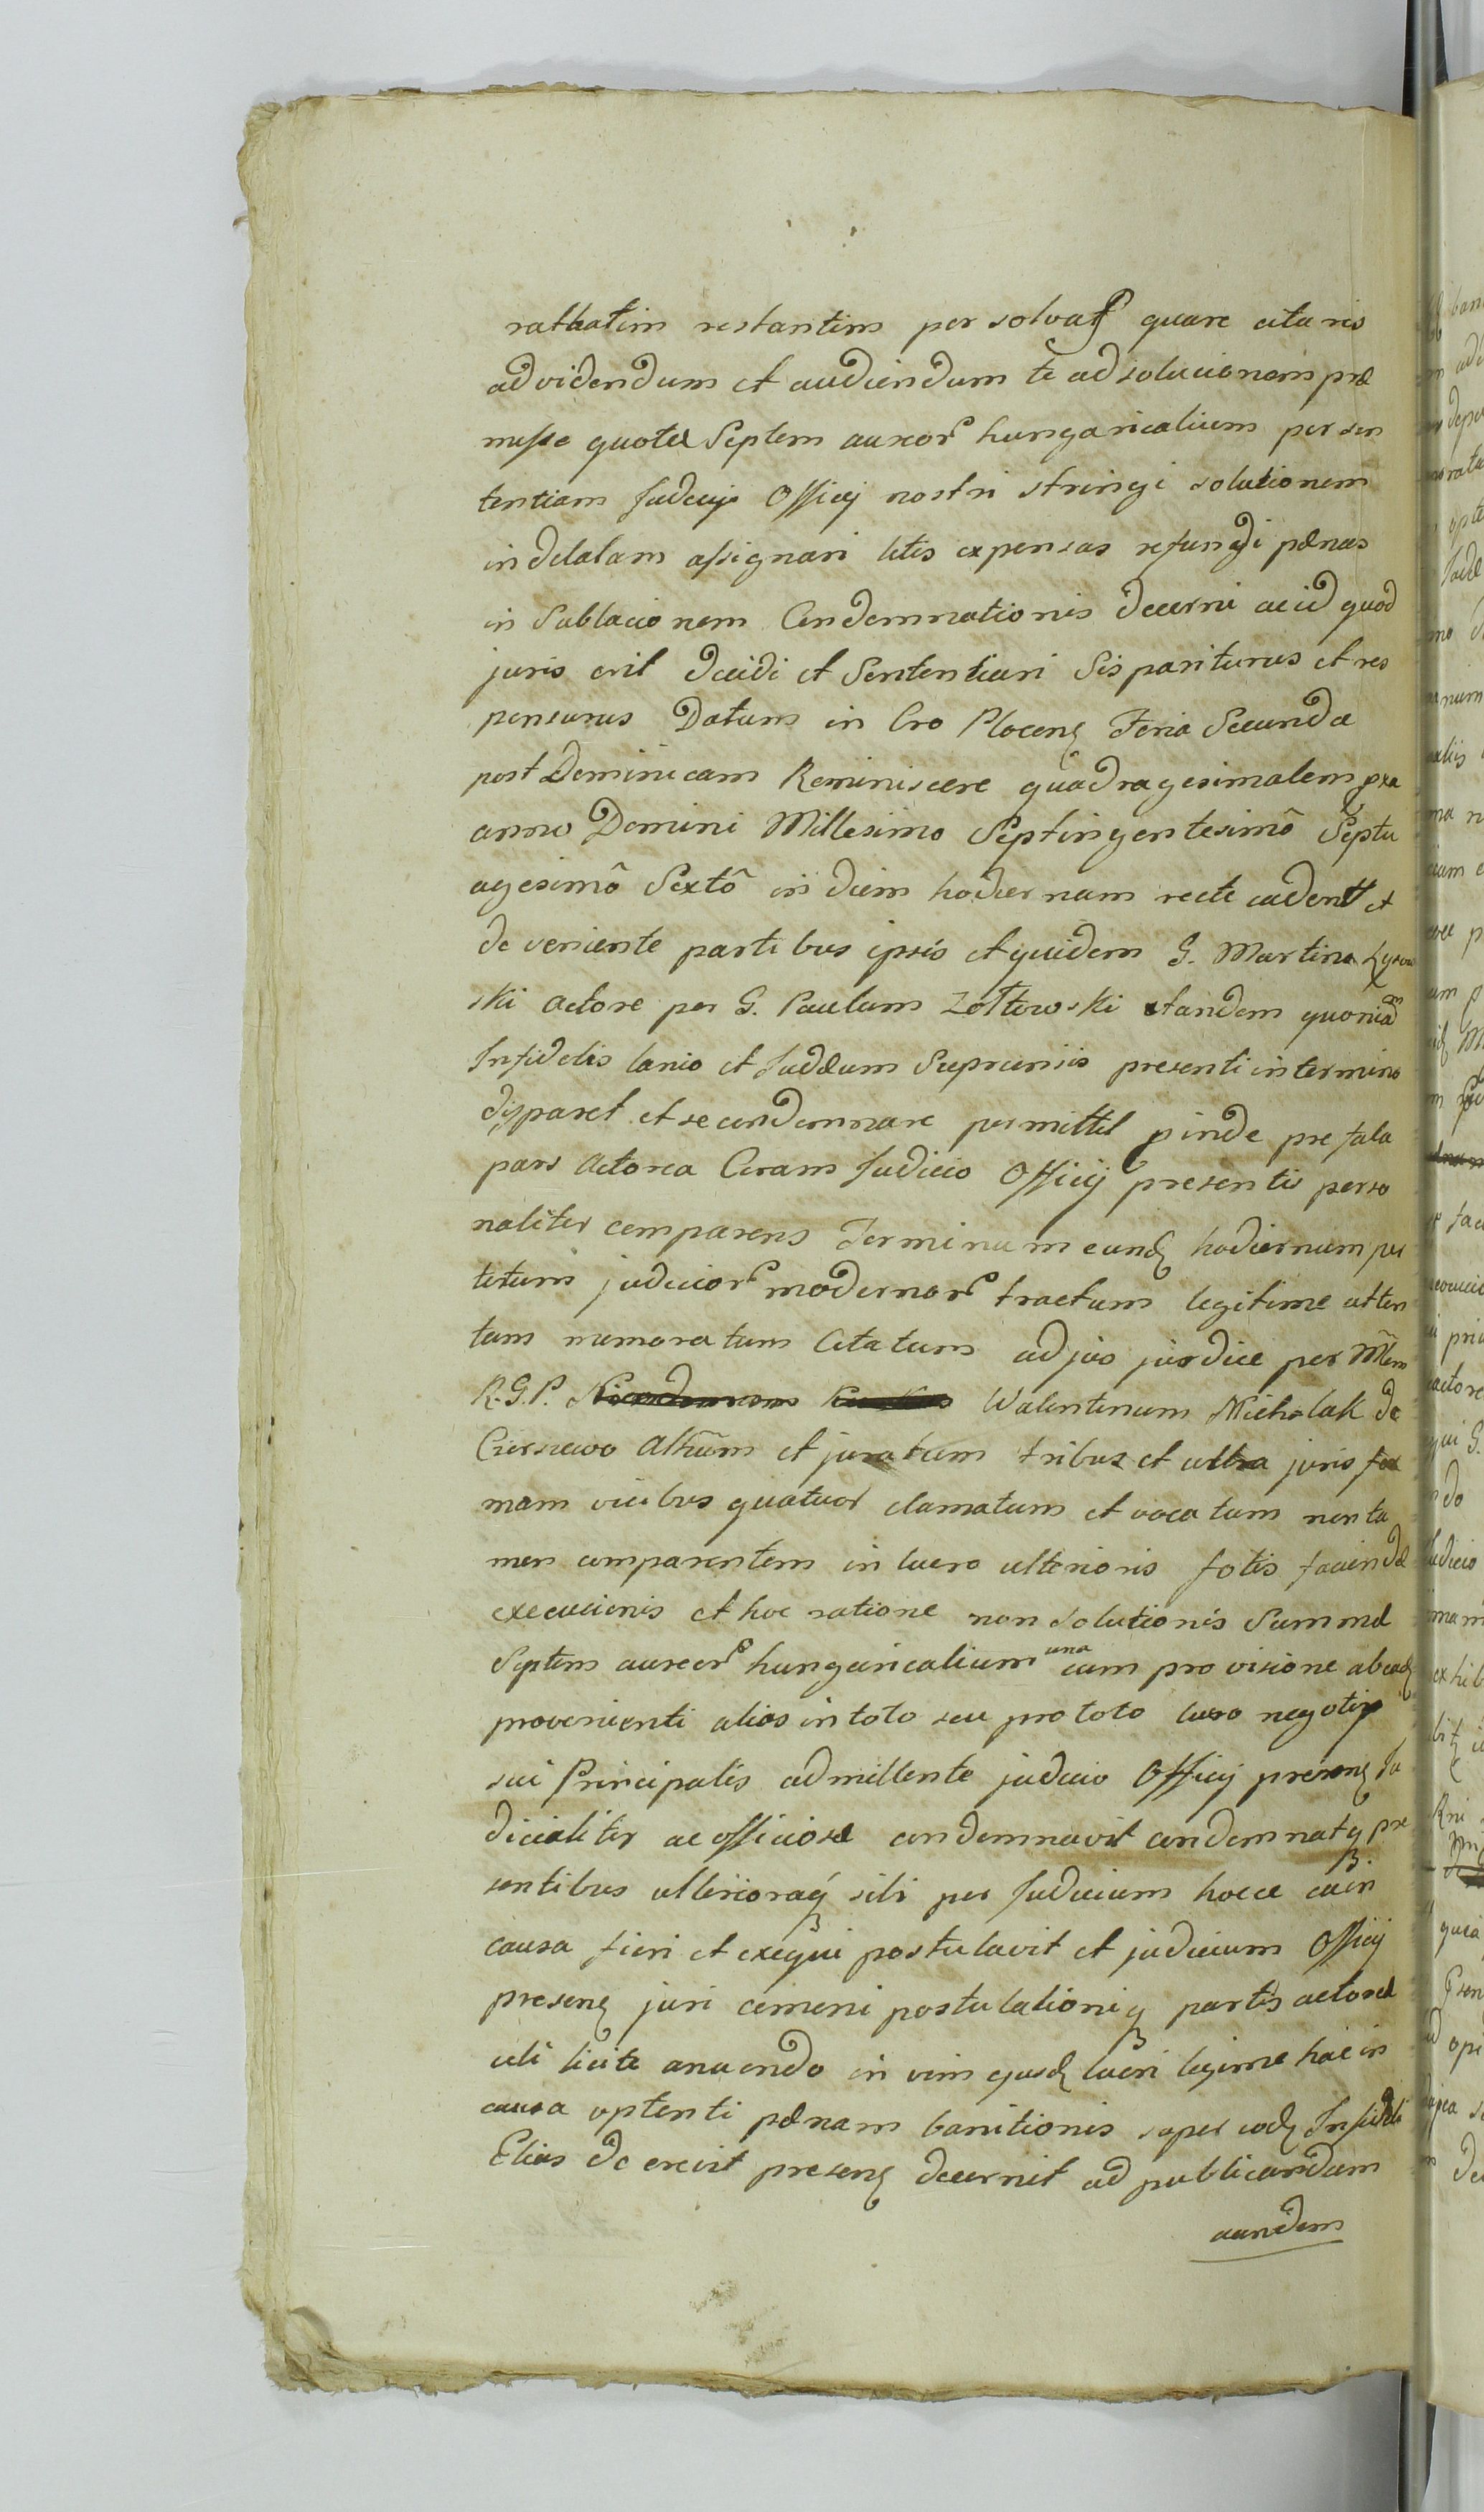 rathatim restantem persolvas quare citaris
ad videndum et audiendum te ad solucionem præ
missæ quotæ Septem aureor hungaricalium per sen
tentiam Judicÿ Officÿ nostri stringi solutionem
indilatam assignari litis expensas refundi pænas
in Sublacionem Condemnationis decerni ac id quod
juris erit decidi et Sententiari Sis pariturus et res
ponsurus Datum in Cro Plocens Feria Secunda
post Dominicam Reminiscere quadragesimalem pxa
anno Domini Millesimo Septingentesimô Septu
agesimô Sextô in diem hodiernam recte caden et
de veniente partibus ipsis et quidem G. Martino
ski actore per G. Paulum Zołtowski standem quoniam
Infidelis lanio et Judæum presenti in termino
disparet et se condemnare permittit pinde prefata
pars Actorea Coram Judicio Officÿ presentis perso
naliter comparens Terminum eund hodiernum per
totum judicior modernor tractum legitime atten
tum memoratum Citatum ad jus juridice per Mlem
R.G.P. Walentinum Michalak de
Ciersiewo Altum et juratum tribus et ultra juris for
mam vicibus quatuor clamatum et vocatum non ta
men comparentem in lucro ulterioris fotis faciendæ
execucionis et hoc ratione non solutionis Summæ
Septem aureor hungaricalium una cum provisione ab ead
provenienti alias in toto seu pro toto lucro negotÿ
sui Principalis admittente judicio Officÿ presens Ju
dicialiter ac officiose condemnavit condemnatq pre
sentibus ulterioraq sibi per Judicium hocce ea in
causa fieri et exequi postulavit et judicium Officÿ
presens juri comuni postulationiq partis actoreæ
uti licite anuendo in vim ejusd lucri legime hac in
causa optenti pænam banitionis super eod Infideli
Elias decrevit presens decernit ad publicandam
eandem